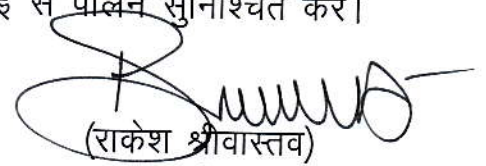 से पालन सुनिश्चित करें।
(राकेश श्रीवास्तव)